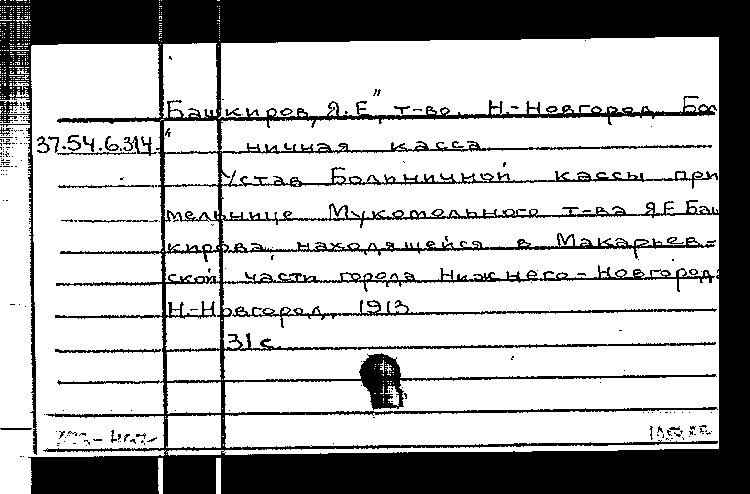 "Башкиров, Я. Е", т-во. Н.-Новгород. Бол
37.54.6.314. ничная касса
Устав Больничной кассы при
мельнице Мукомольного т-ва Я.Е.Баш
кирова, находящейся в Макарьев=
ской части города Нижнего-Новгорода
Н.-Новгород, 1913
31 с.